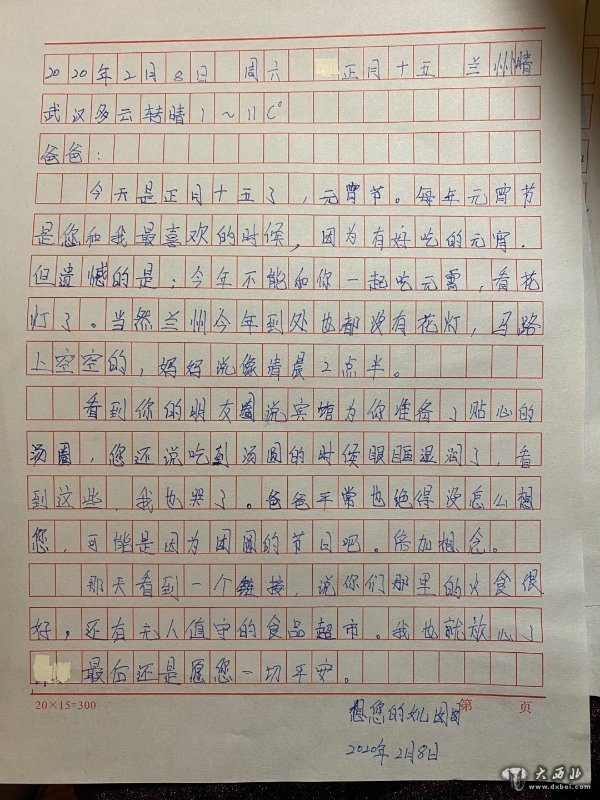 2020年2月8日 周六 正月十五 兰州晴
武汉多云转晴 1~11C°
爸爸：
今天是正月十五了，元宵节。每年元宵节
是您和我最喜欢的时候，因为有好吃的元宵.
但遗憾的是：今年不能和你一起吃元宵，看花
灯了。当然兰州今年到处也都没有花灯，马路
上空空的，妈妈说像清晨2点半。
看到你的朋友圈说宾馆为你准备了贴心的
汤圆，您还说吃到汤圆的时候眼眶湿润了，看
到这些，我也哭了。爸爸平常也绝得没怎么想
您，可能是因为团圆的节日吧。倍加想念。
那天看到一个链接，说你们那里的火食很
好，还有无人值守的食品超市。我也就放心了
最后还是愿您一切平安。
20×15=300
第 页
想您的
2020年2月8日
大西北
www.dxbei.com